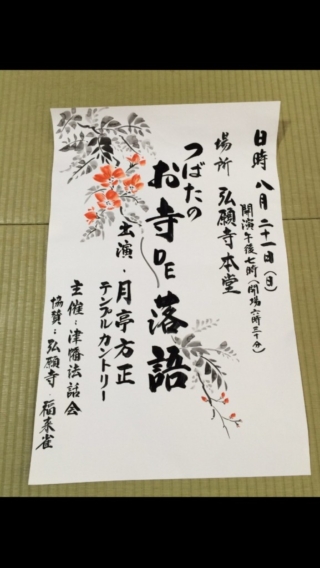 日時 八月二十一日(日)
開演午後七時(開場六時三十分)
場所 弘願寺本堂
つばたの
お寺DE落語
出演・月亭方正
テンプルカントリー
主催:津幡法話会
協賛:弘願寺・福来雀